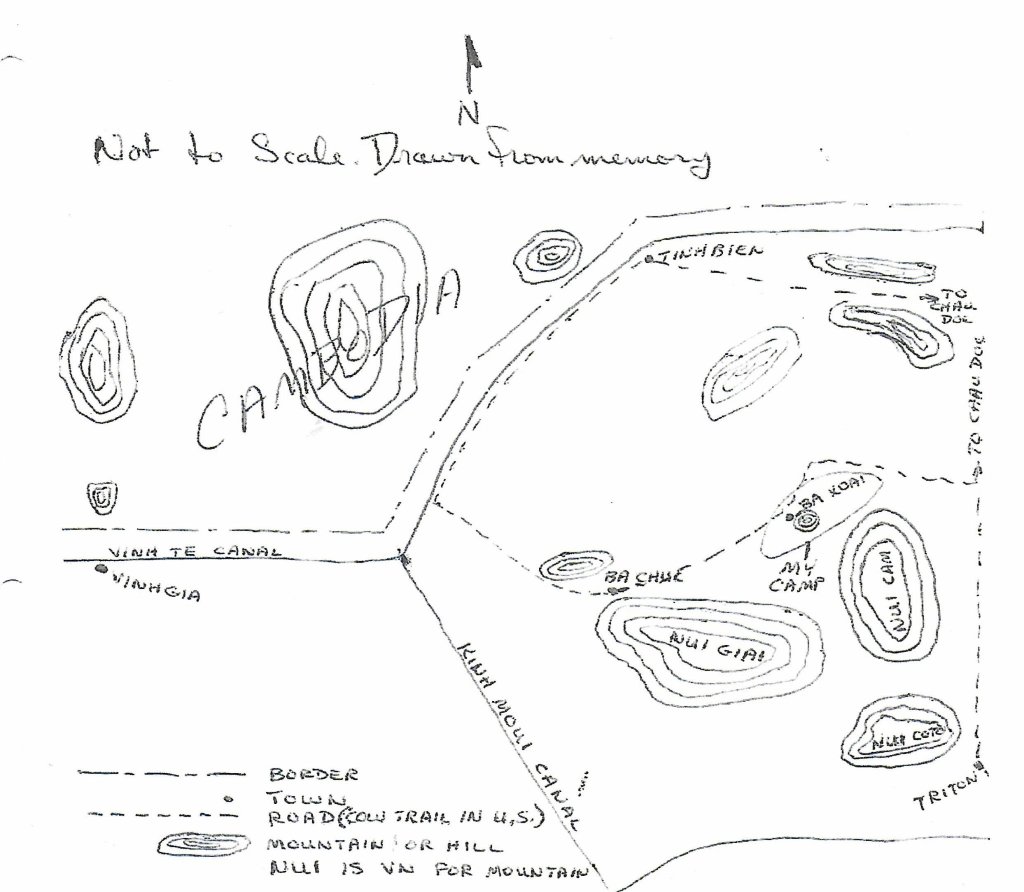 N
Not to Scale. Drawn from memory
CAMBODIA
TINHBIEN
TO
CHAU
DOC
TO CHAU DOC
BA XOAI
MY
CAMP
NUI CAM
VINH TE CANAL
VINHGIA
BA CHUC
NUI GIAI
KINH MOUI CANAL
NUI COTO
TRITON
BORDER
TOWN
ROAD (COW TRAIL IN U.S.)
MOUNTAIN OR HILL
NUI IS VN FOR MOUNTAIN